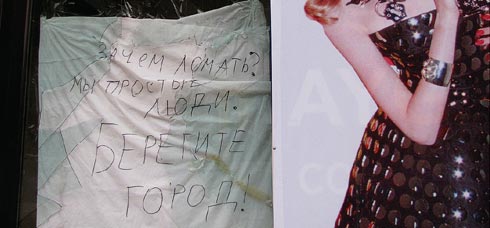 ЗАЧЕМ ЛОМАТЬ?
МЫ ПРОСТЫЕ
ЛЮДИ.
БЕРЕГИТЕ
ГОРОД!
AY
CO